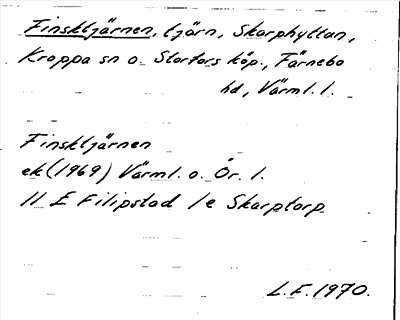 Finsktjärnen, tjärn, Skarphyttan,
Kroppa sn o. Storfors köp., Färnebo
hd, Värml. l.
Finsktjärnen
ek (1969) Värml. o. Ör. l.
11 E Filipstad 1e Skarptorp
L.F. 1970.